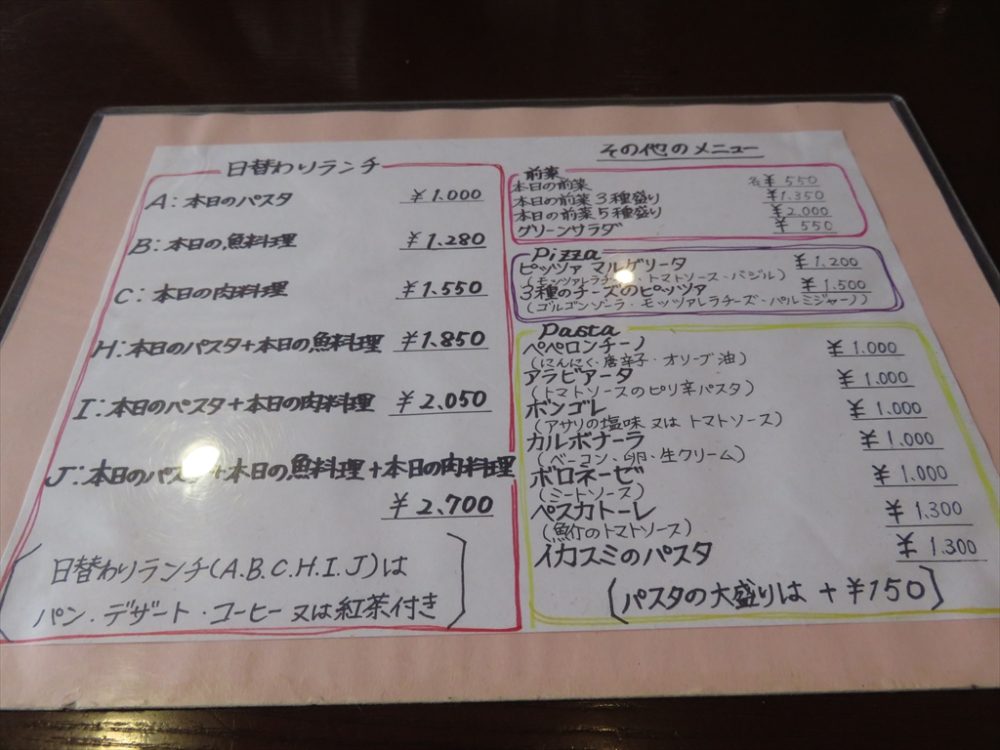 日替わりランチ
A:本日のパスタ ¥1.000
B:本日の魚料理 ¥1.280
C:本日の肉料理 ¥1.550
H:本日のパスタ+本日の魚料理 ¥1.850
I:本日のパスタ+本日の肉料理 ¥2.050
J:本日のパスタ+本日の魚料理+本日の肉料理
¥2.700
日替わりランチ(A.B.C.H.I.J)は
パン・デザート・コーヒー又は紅茶付き
その他のメニュー
前菜
本日の前菜 各¥550
本日の前菜3種盛り ¥1.350
本日の前菜5種盛り ¥2.000
グリーンサラダ ¥550
Pizza
ピッツァ マルゲリータ ¥1.200
(モッツァレラチーズ・トマトソース・バジル)
3種のチーズのピッツァ ¥1.500
(ゴルゴンゾーラ・モッツァレラチーズ・パルミジャーノ)
Pasta
ペペロンチーノ ¥1.000
(にんにく・唐辛子・オリーブ油)
アラビアータ ¥1.000
(トマトソースのピリ辛パスタ)
ボンゴレ ¥1.000
(アサリの塩味 又は トマトソース)
カルボナーラ ¥1.000
(ベーコン・卵・生クリーム)
ボロネーゼ ¥1.000
(ミートソース)
ペスカトーレ ¥1.300
(魚介のトマトソース)
イカスミのパスタ ¥1.300
(パスタの大盛りは +¥150)